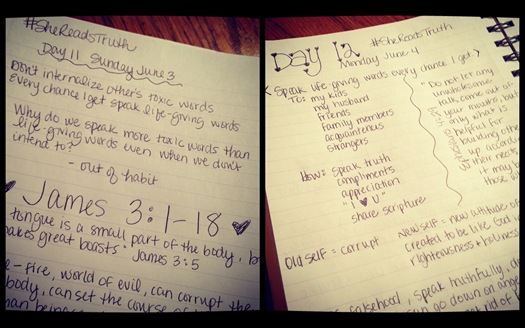 #SheReadsTruth
Day 11 Sunday June 3
Don't internalize other's toxic words
Every chance I get speak life-giving words
Why do we speak more toxic words than
life-giving words even when we don't
intend to?
- out of habit
James 3:1-18
tongue is a small part of the body,
makes great boasts. James 3:5
fire, world of evil, can corrupt the
body, can set the course of
Day 12 #SheReadsTruth
Monday June 4
Speak life-giving words every chance I get
To: my kids
my husband
friends
family members
acquaintences
strangers
How: speak truth
compliments
appreciation
"I ♥ U"
share scripture
Do not let any
unwholesome
talk come out of
your mouths, but
only what is
helpful for
building others
up according
to their needs,
it may
those
Old self = corrupt
New self = new attitude of
created to be like God
righteousness + holiness
falsehood, speak truthfully,
go down on